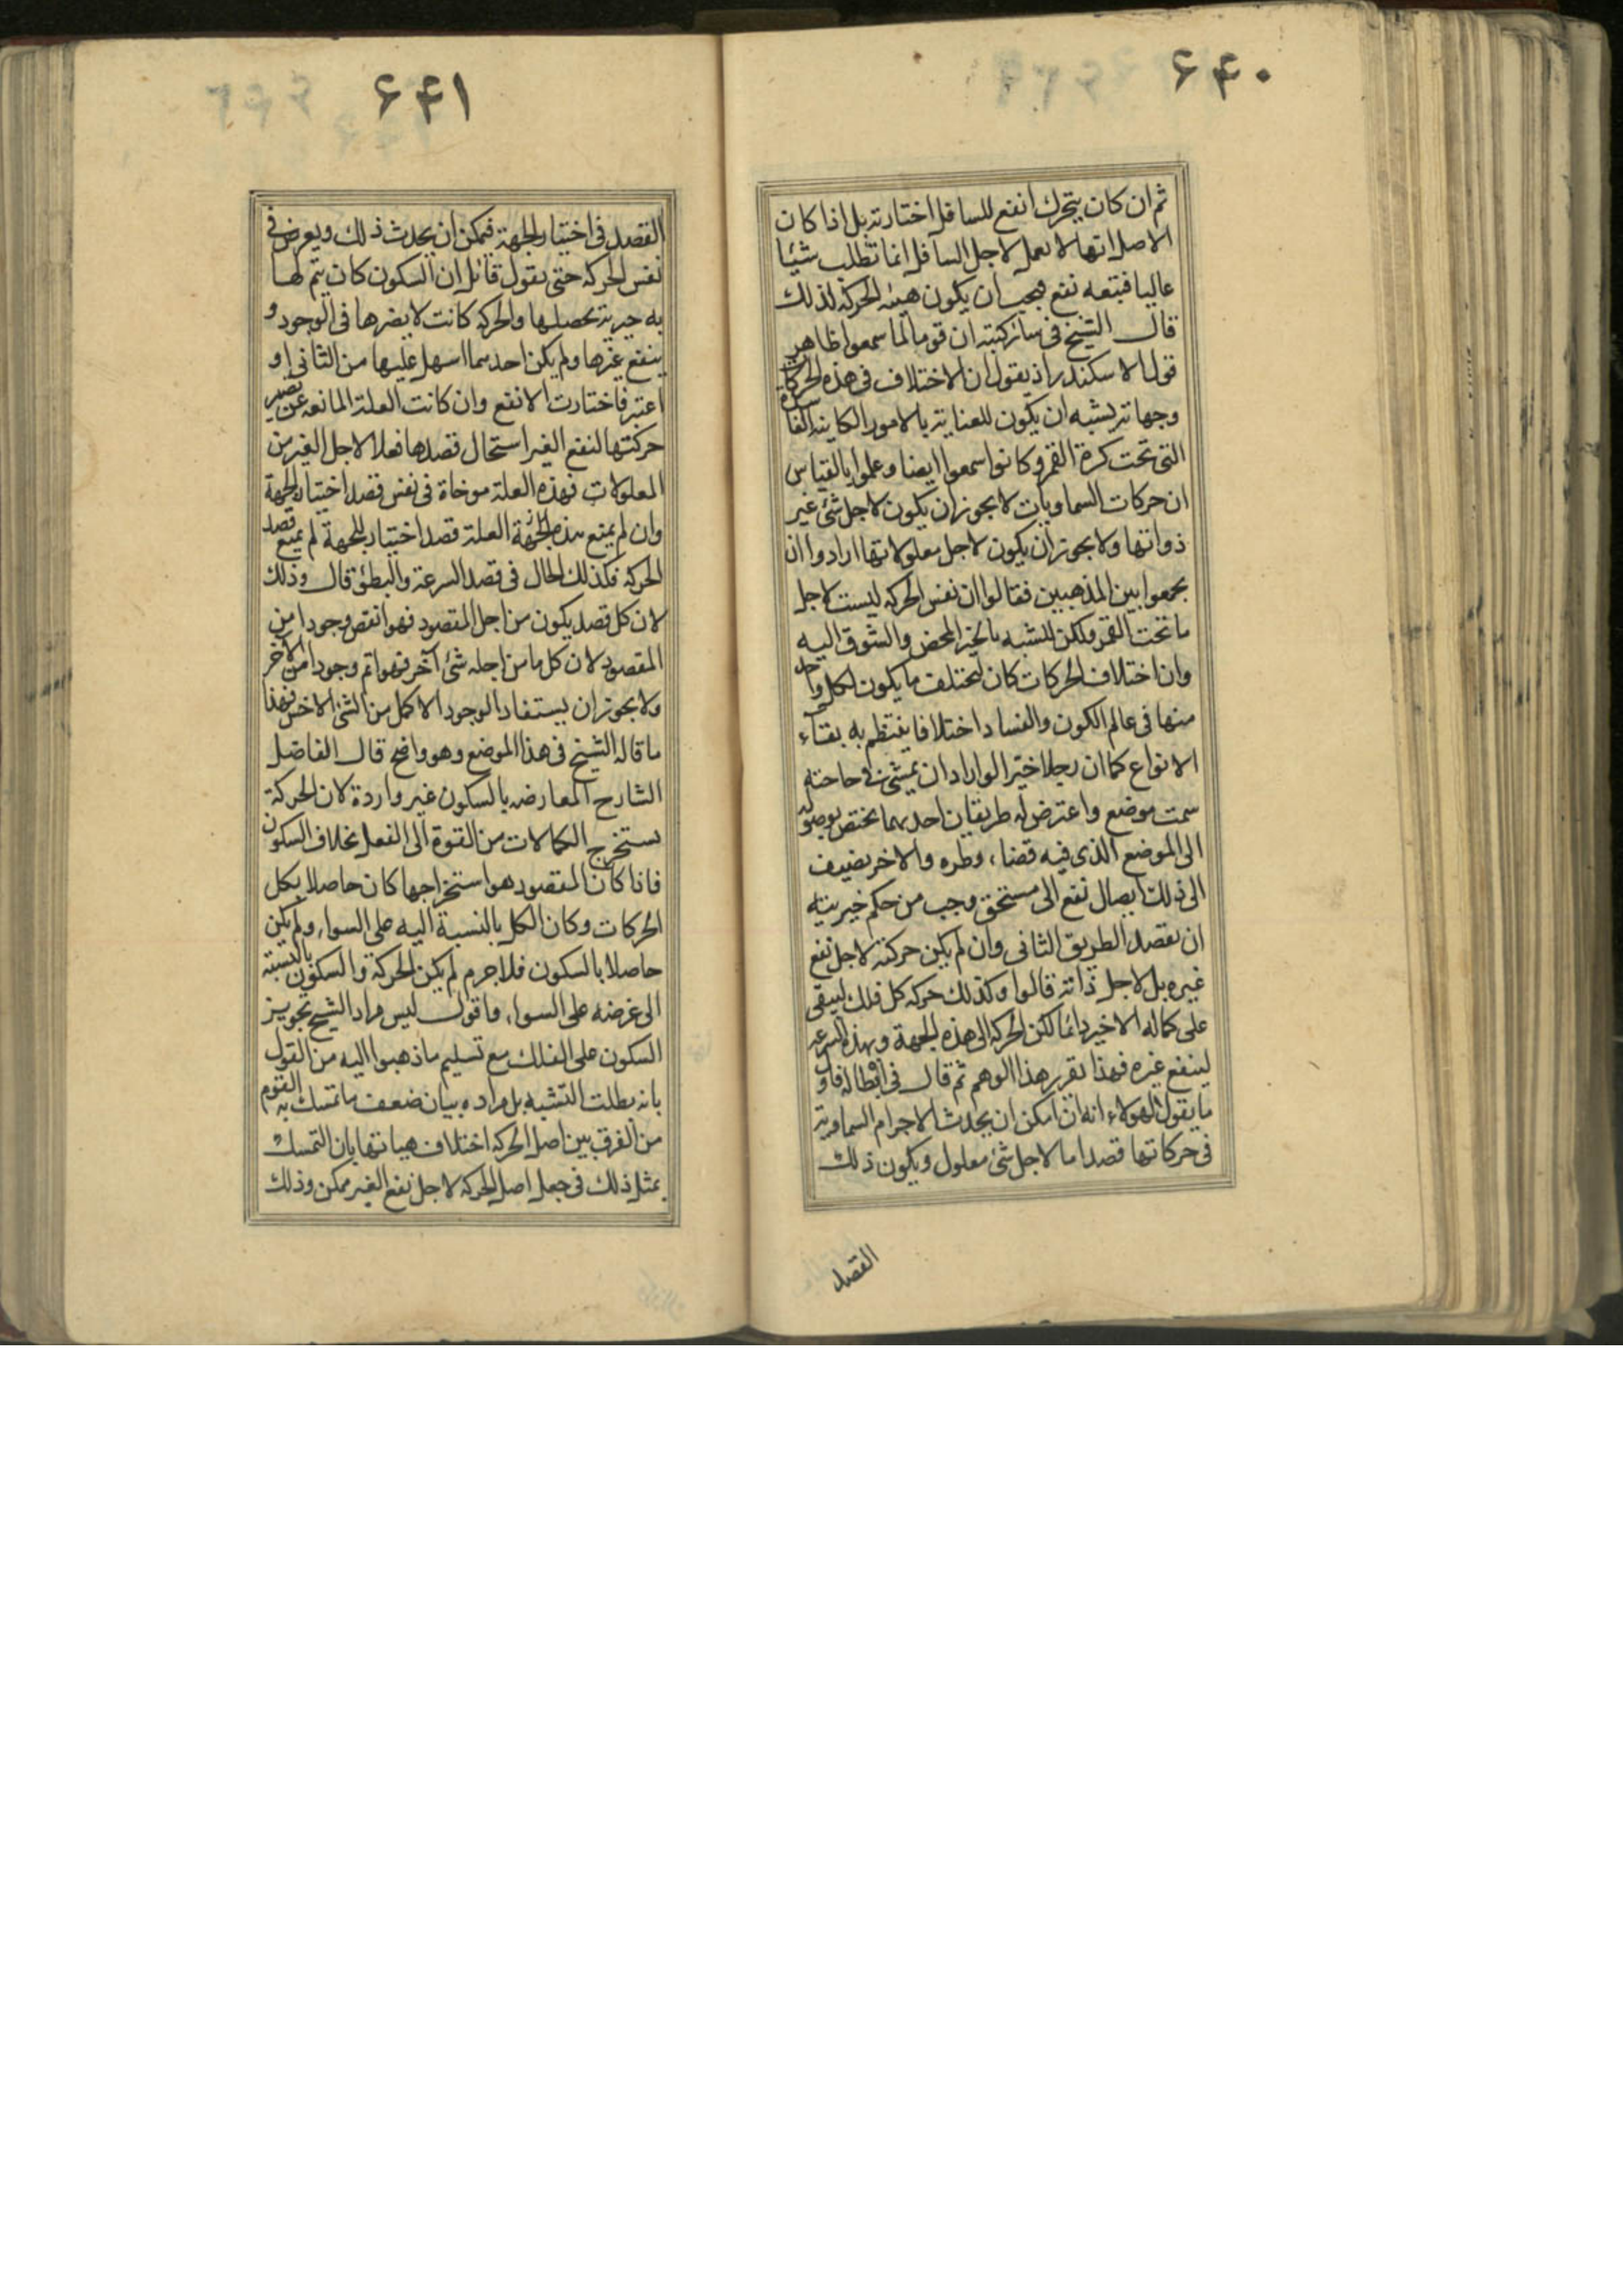 ۶۴۰
ثم ان كان يتحرك انفع للسافل اختارته بل اذا كان
الاصل انها لا تعمل لاجل السافل انما تطلب شيئا
عاليا فيتبعه نفع فيجب ان يكون هيئه الحركة لذلك
قال الشيخ في سائر كتبه ان قوما لما سمعوا ظاهر
قول الاسكندر اذ يقول ان الاختلاف في هذه الحركات
وجهاتها يشبه ان يكون للعناية بالامور الكاينه الفاسدة
التي تحت كرة القمر وكانوا سمعوا ايضا وعلموا بالقياس
ان حركات السماويات لا يجوز ان يكون لاجل شئ غير
ذواتها ولا يجوز ان يكون لاجل معلولاتها ارادوا ان
يجمعوا بين المذهبين فقالوا ان نفس الحركه ليست لاجل
ما تحت القمر ولكن للتشبه بالخير المحض والشوق اليه
وان اختلاف الحركات كان ليختلف ما يكون لكل واحد
منها في عالم الكون والفساد اختلافا ينتظم به بقاء
الانواع كما ان رجلا خيرا لو اراد ان يمشي في حاجته
سمت موضع واعترض له طريقان احدهما يختص بوصوله
الى الموضع الذي فيه قضاء وطره والاخر يضيف
الى ذلك ايصال نفع الى مستحق وجب من حكم خيريته
ان يقصد الطريق الثاني وان لم يكن حركته لاجل نفع
غيره بل لاجل ذاته قالوا وكذلك حركه كل فلك ليبقى
على كماله الاخير دائما لكن الحركه الى هذه الجهة وبهذه السرعه
لينفع غيره فهذا تقرر هذا الوهم ثم قال في ابطاله فاول
ما يقول لهولاء انه ان امكن ان يحدث الاجرام السماوية
في حركاتها قصد اما لاجل شئ معلول ويكون ذلك
القصد
۶۴۱
القصد في اختيار الجهة فيمكن ان يحدث ذلك ويعرض في
نفس الحركه حتى يقول قائل ان السكون كان يتم لها
به خيرية تحصلها والحركه كانت لا يضرها في الوجود و
ينفع غيرها ولم يكن احدهما اسهل عليها من الثاني او
اعتبر فاختارت الانفع وان كانت العلة المانعه عن تصير
حركتها لنفع الغير استحال قصدها فعلا لاجل الغير من
المعلولات فهذه العلة موخاة في نفس قصد اختيار الجهة
وان لم يمنع هذه الجهة العلة قصد اختيار الجهة لم يمنع قصد
الحركه فكذلك الحال في قصد السرعة والبطؤ قال وذلك
لان كل قصد يكون من اجل المقصود فهو انقص وجودا من
المقصود لان كل ما من اجله شئ آخر فهو اتم وجودا من الاخر
ولا يجوز ان يستفاد الوجود الاكمل من الشئ الاخس فهذا
ما قاله الشيخ في هذا الموضع وهو واضح قال الفاضل
الشارح المعارضه بالسكون غير واردة لان الحركة
يستخرج الكمالات من القوة الى الفعل بخلاف السكون
فاذا كان المقصود هو استخراجها كان حاصلا بكل
الحركات وكان الكل بالنسبة اليه على السواء ولم يكن
حاصلا بالسكون فلا جرم لم يكن الحركة والسكون بالنسبة
الى غرضه على السواء واقول ليس مراد الشيخ تجويز
السكون على الفلك مع تسليم ما ذهبوا اليه من القول
بانه يطلب التشبه بل مراده بيان ضعف ما تمسك به القوم
من الفرق بين اصل الحركه اختلاف هيباتها بان التمسك
بمثل ذلك في جعل اصل الحركه لاجل نفع الغير ممكن وذلك